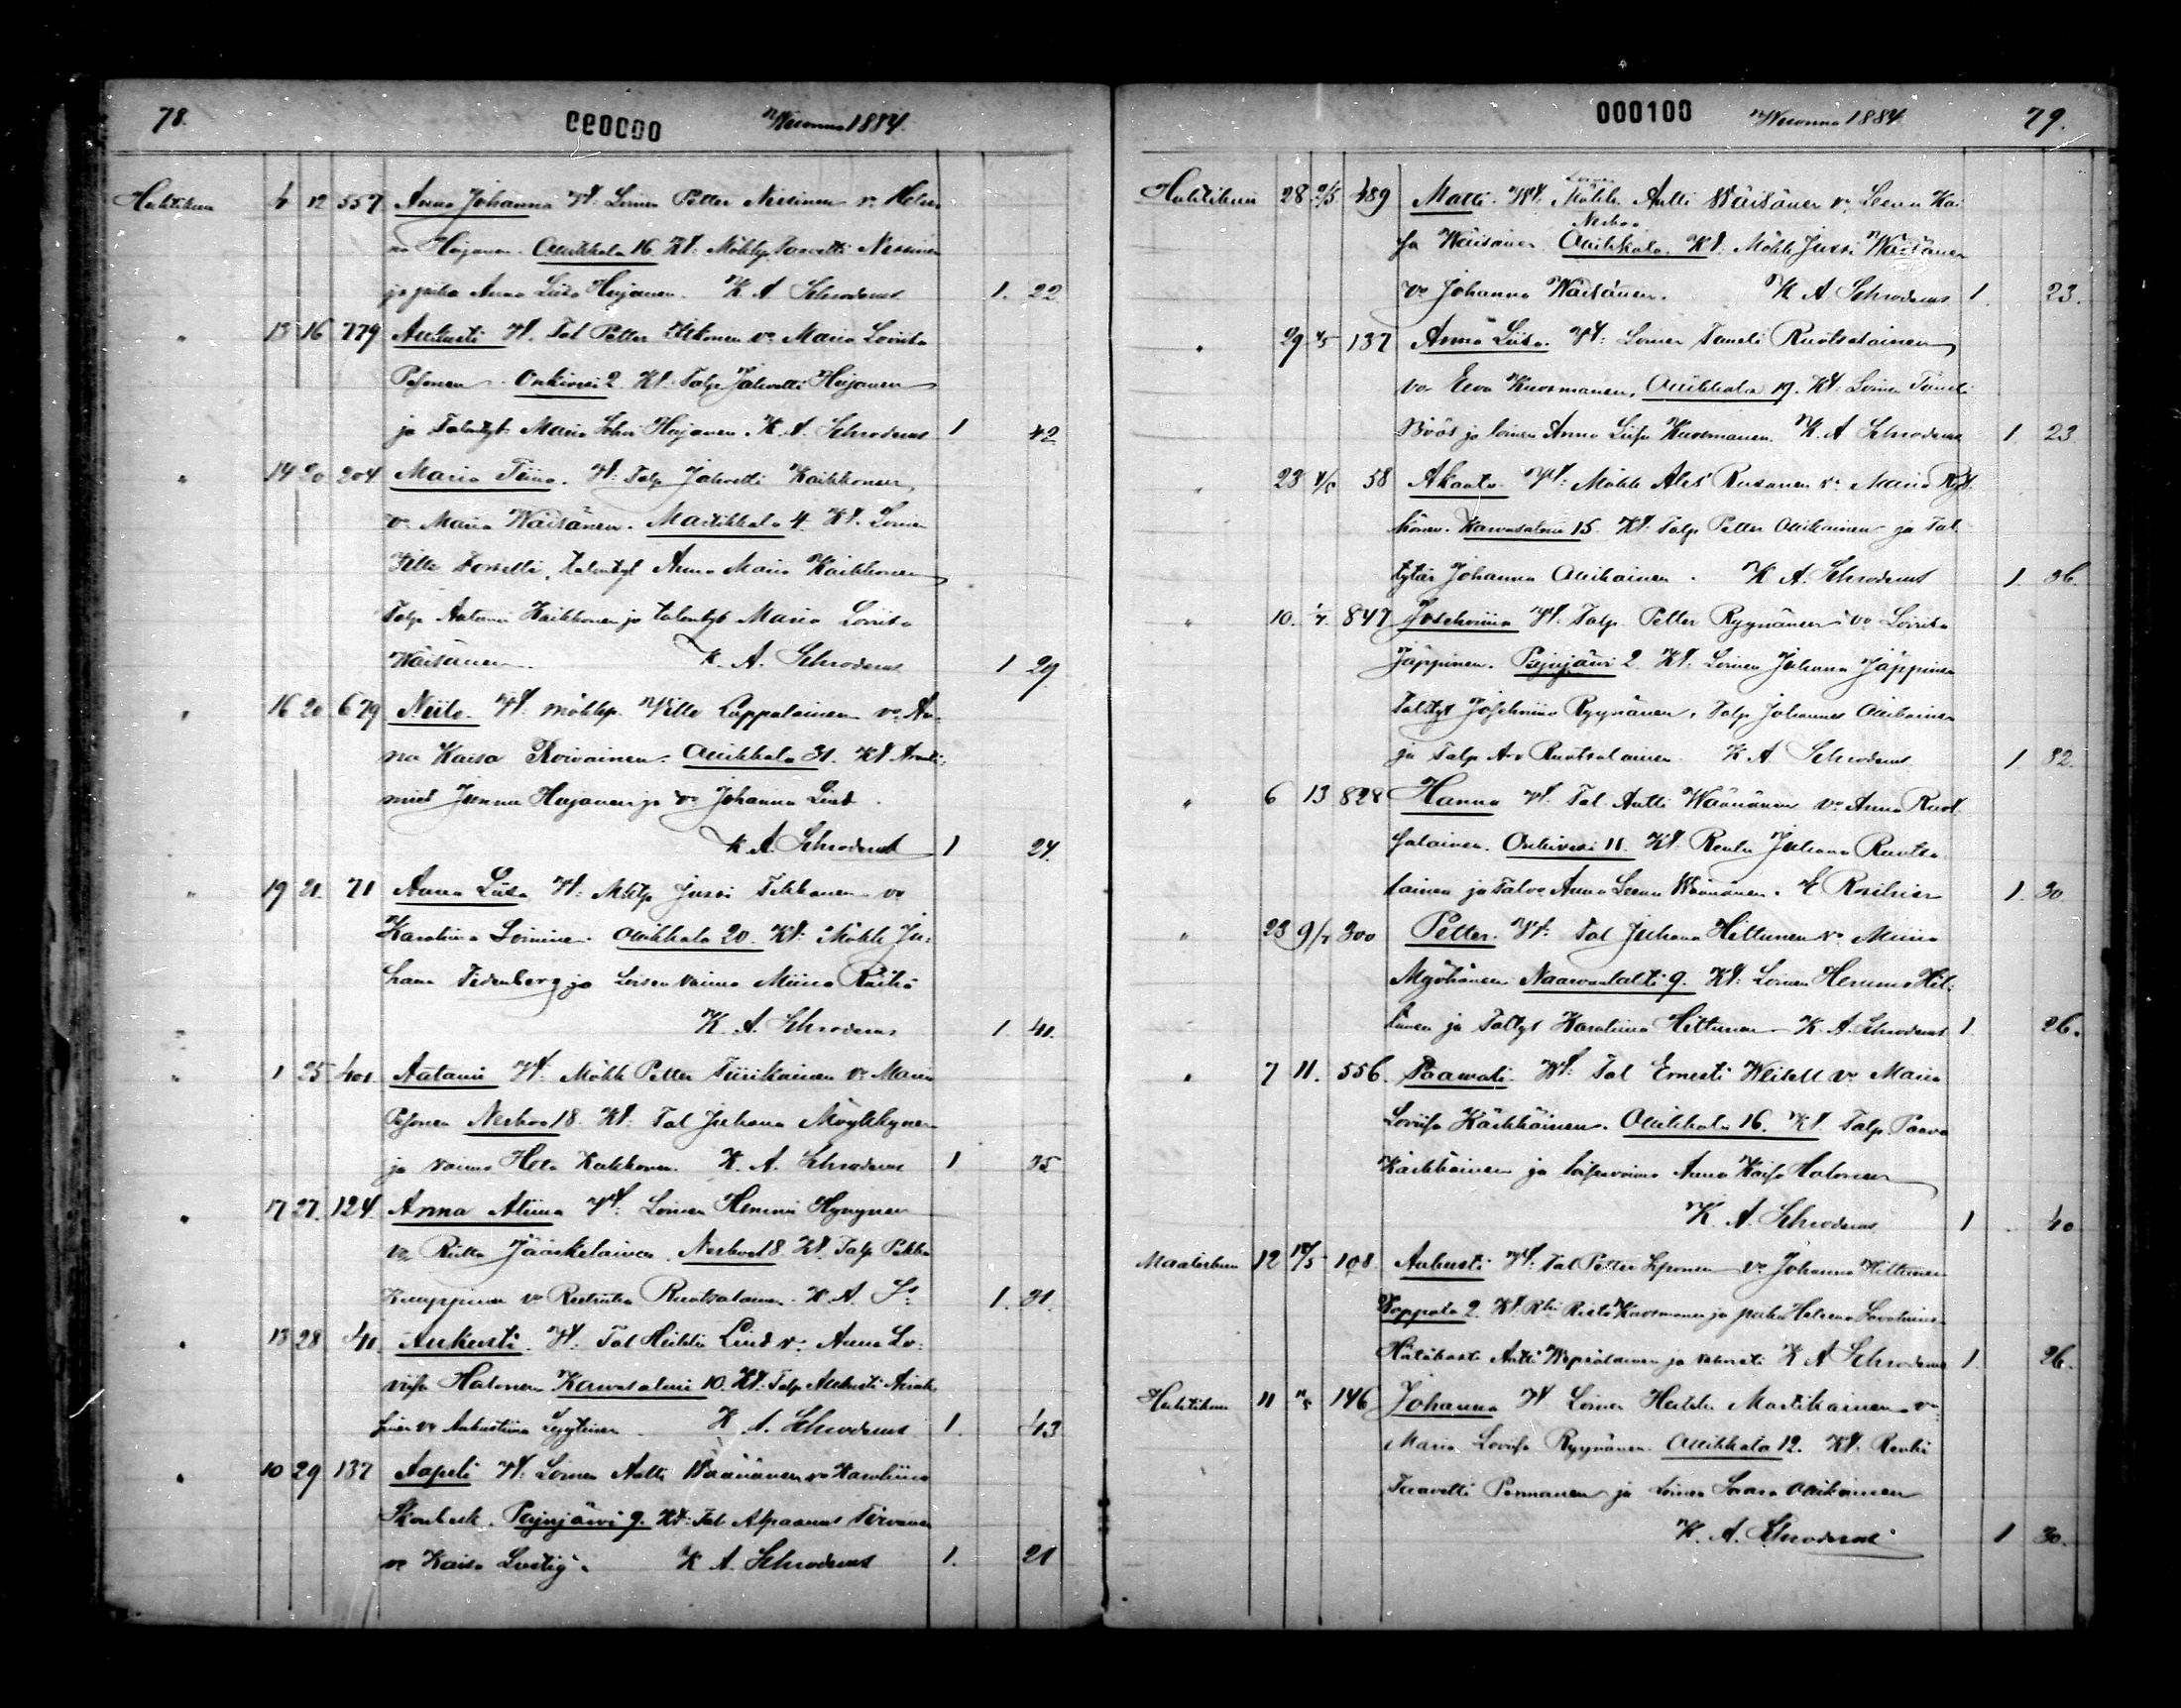 78.
000099
Wuonna 1884.
Huhtikuu 4 12 557 Anna Johanna Wt: Loinen Petter Nissinen vo Hele-
na Hujanen. Ollikkala 16. Kt: Mökkp. Taavetti Nissinen
ja piika Anna Liisa Hujanen. K. A. Schroderus 1. 22.
" 13 16 779 Aukusti Wt. Tal Petter Ikonen vo Maria Loviisa
Pesonen. Onkivesi 2. Kt. Talp Jahvetti Hujanen
ja Talontyt. Maria Sohvi Hujanen. K. A. Schroderus 1 42
" 14 20 204 Maria Tiina. Wt: Talp Jahvetti Kaikkonen
vo Maria Wäisänen. Martikkala 4. Kt. Loinen
Ville Torvelli, talontyt Anna Maria Kaikkonen
Talp Aatami Kaikkonen ja talontyt Maria Loviisa
Wäisänen. K. A. Schroderus 1 29
" 16 20 679 Niilo. Wt. mökkp. Ville Lappalainen vo An-
na Kaisa Roivainen. Ollikkala 31. Kt
Hujanen ja vo Johanna Lind.
K. A. Schroderus 1 24.
" 19 21. 71 Anna Liisa Wt: Mökp Jussi Tikkanen vo
Karoliina Loininen. Ollikkala 20. Kt: Mökk Ju-
hana Tidenberg ja Loisen vaimo Miina Räihä
K. A. Schroderus 1. 41.
" 1 25 401 Aatami Wt: Mökk Petter Tiirikainen vo Maria
Pesonen Nerkoo 18. Kt: Tal Juhana Möykkynen
ja vaimo Heta Kakkonen. K. A. Schroderus 1 35
" 17 27. 124. Anna Aliina Wt: Loinen Hemmi Hynynen
vo Riitta Jääskeläinen. Nerkoo 18. Kt. Talp Pekka
Kumppinen vo Ruotsalainen. K. A. S: 1. 31.
" 13 28 41. Aukusti. Wt. Tal Heikki Lind vo. Anna Lo-
viisa Halonen Kauvasalmi 10. Kt: Talp Aukusti
vo Aukustiina Lyytinen. K. A. Schroderus 1. 43
" 10 29 137 Aapeli Wt: Loinen Antti Väänänen vo Karoliina
Skonbeck. Pajujärvi 9. Kt: Tal Tirvanen
vo Kaisa Lustig. K. A. Schroderus 1. 21
000100
Wuonna 1884.
79.
Huhtikuu 28 2/5 489 Matti. Wt. Loinen Mökk. Antti Wäisänen vo Leena Kai-
Nerkoo
sa Wäisänen. Ollikkala. Kt. Mökk Jussi Wäisänen
vo Johanna Wäisänen. K A Schroderus 1 23.
" 29 4/5 137 Anna Liisa. Wt: Loinen Taneli Ruotsalainen
vo Eeva Kuosmanen. Ollikkala 19. Kt: Loinen Taneli
Böös ja loinen Anna Liisa Kuosmanen. K. A Schroderus 1. 23.
" 23 4/5 58 Akaata Wt: Mökk Rusanen vo. Maria Ryt-
könen. Kauvasalmi 15. Kt: Talp Petter Ollikainen ja Tal.
tytär Johanna Ollikainen. K A. Schroderus 1. 36.
" 10. 847 Josehviina Wt. Talp. Petter Ryynänen vo Loviisa
Jäppinen. Pajujärvi 2. Kt: Loinen Juhana Jäppinen
Taltyt Josehviina Ryynänen. Talp Johannes Ollikainen
ja Talp Ruotsalainen. K A Schroderus 1. 32.
" 6 13 828 Hanna Wt. Tal Antti Väänänen vo Anna Ruot-
salainen. Onkivesi 11. Kt. Renki Juhana Ruotsa-
lainen ja Talvo Anna Leena Väänänen. 1. 30.
" 23 300 Petter. Wt: Tal Juhana Hiltunen vo Miina
Myöhänen Naarvanlahti 9. Kt: Loinen Hemmo Hil-
tunen ja Taltyt Karoliina Hiltunen K. A. Schroderus 1. 26.
" 7 11. 556. Paavali. Wt: Tal Ernesti vo Maria
Loviisa Kärkkäinen. Ollikkala 16. Kt Talp. Paavo
Kärkkäinen ja loisenvaimo Anna Kaisa Halonen
K. A. Schroderus 1 40
Maaliskuu 12 108. Aukusti Wt: Tal Petter vo Johanna Hiltunen
2. Kt. Rki Risto Kuosmanen ja piika Helena Savolainen
Hätäkaste Antti Wepsäläinen ja K A Schroderus 1. 26.
Huhtikuu 11 146 Johanna Wt Loinen Heikki Martikainen vo
Maria Loviisa Ryynänen. Ollikkala 12. Kt. Renki
Taavetti Pennanen ja Loinen Ollikainen
K. A. Schroderus 1 30.